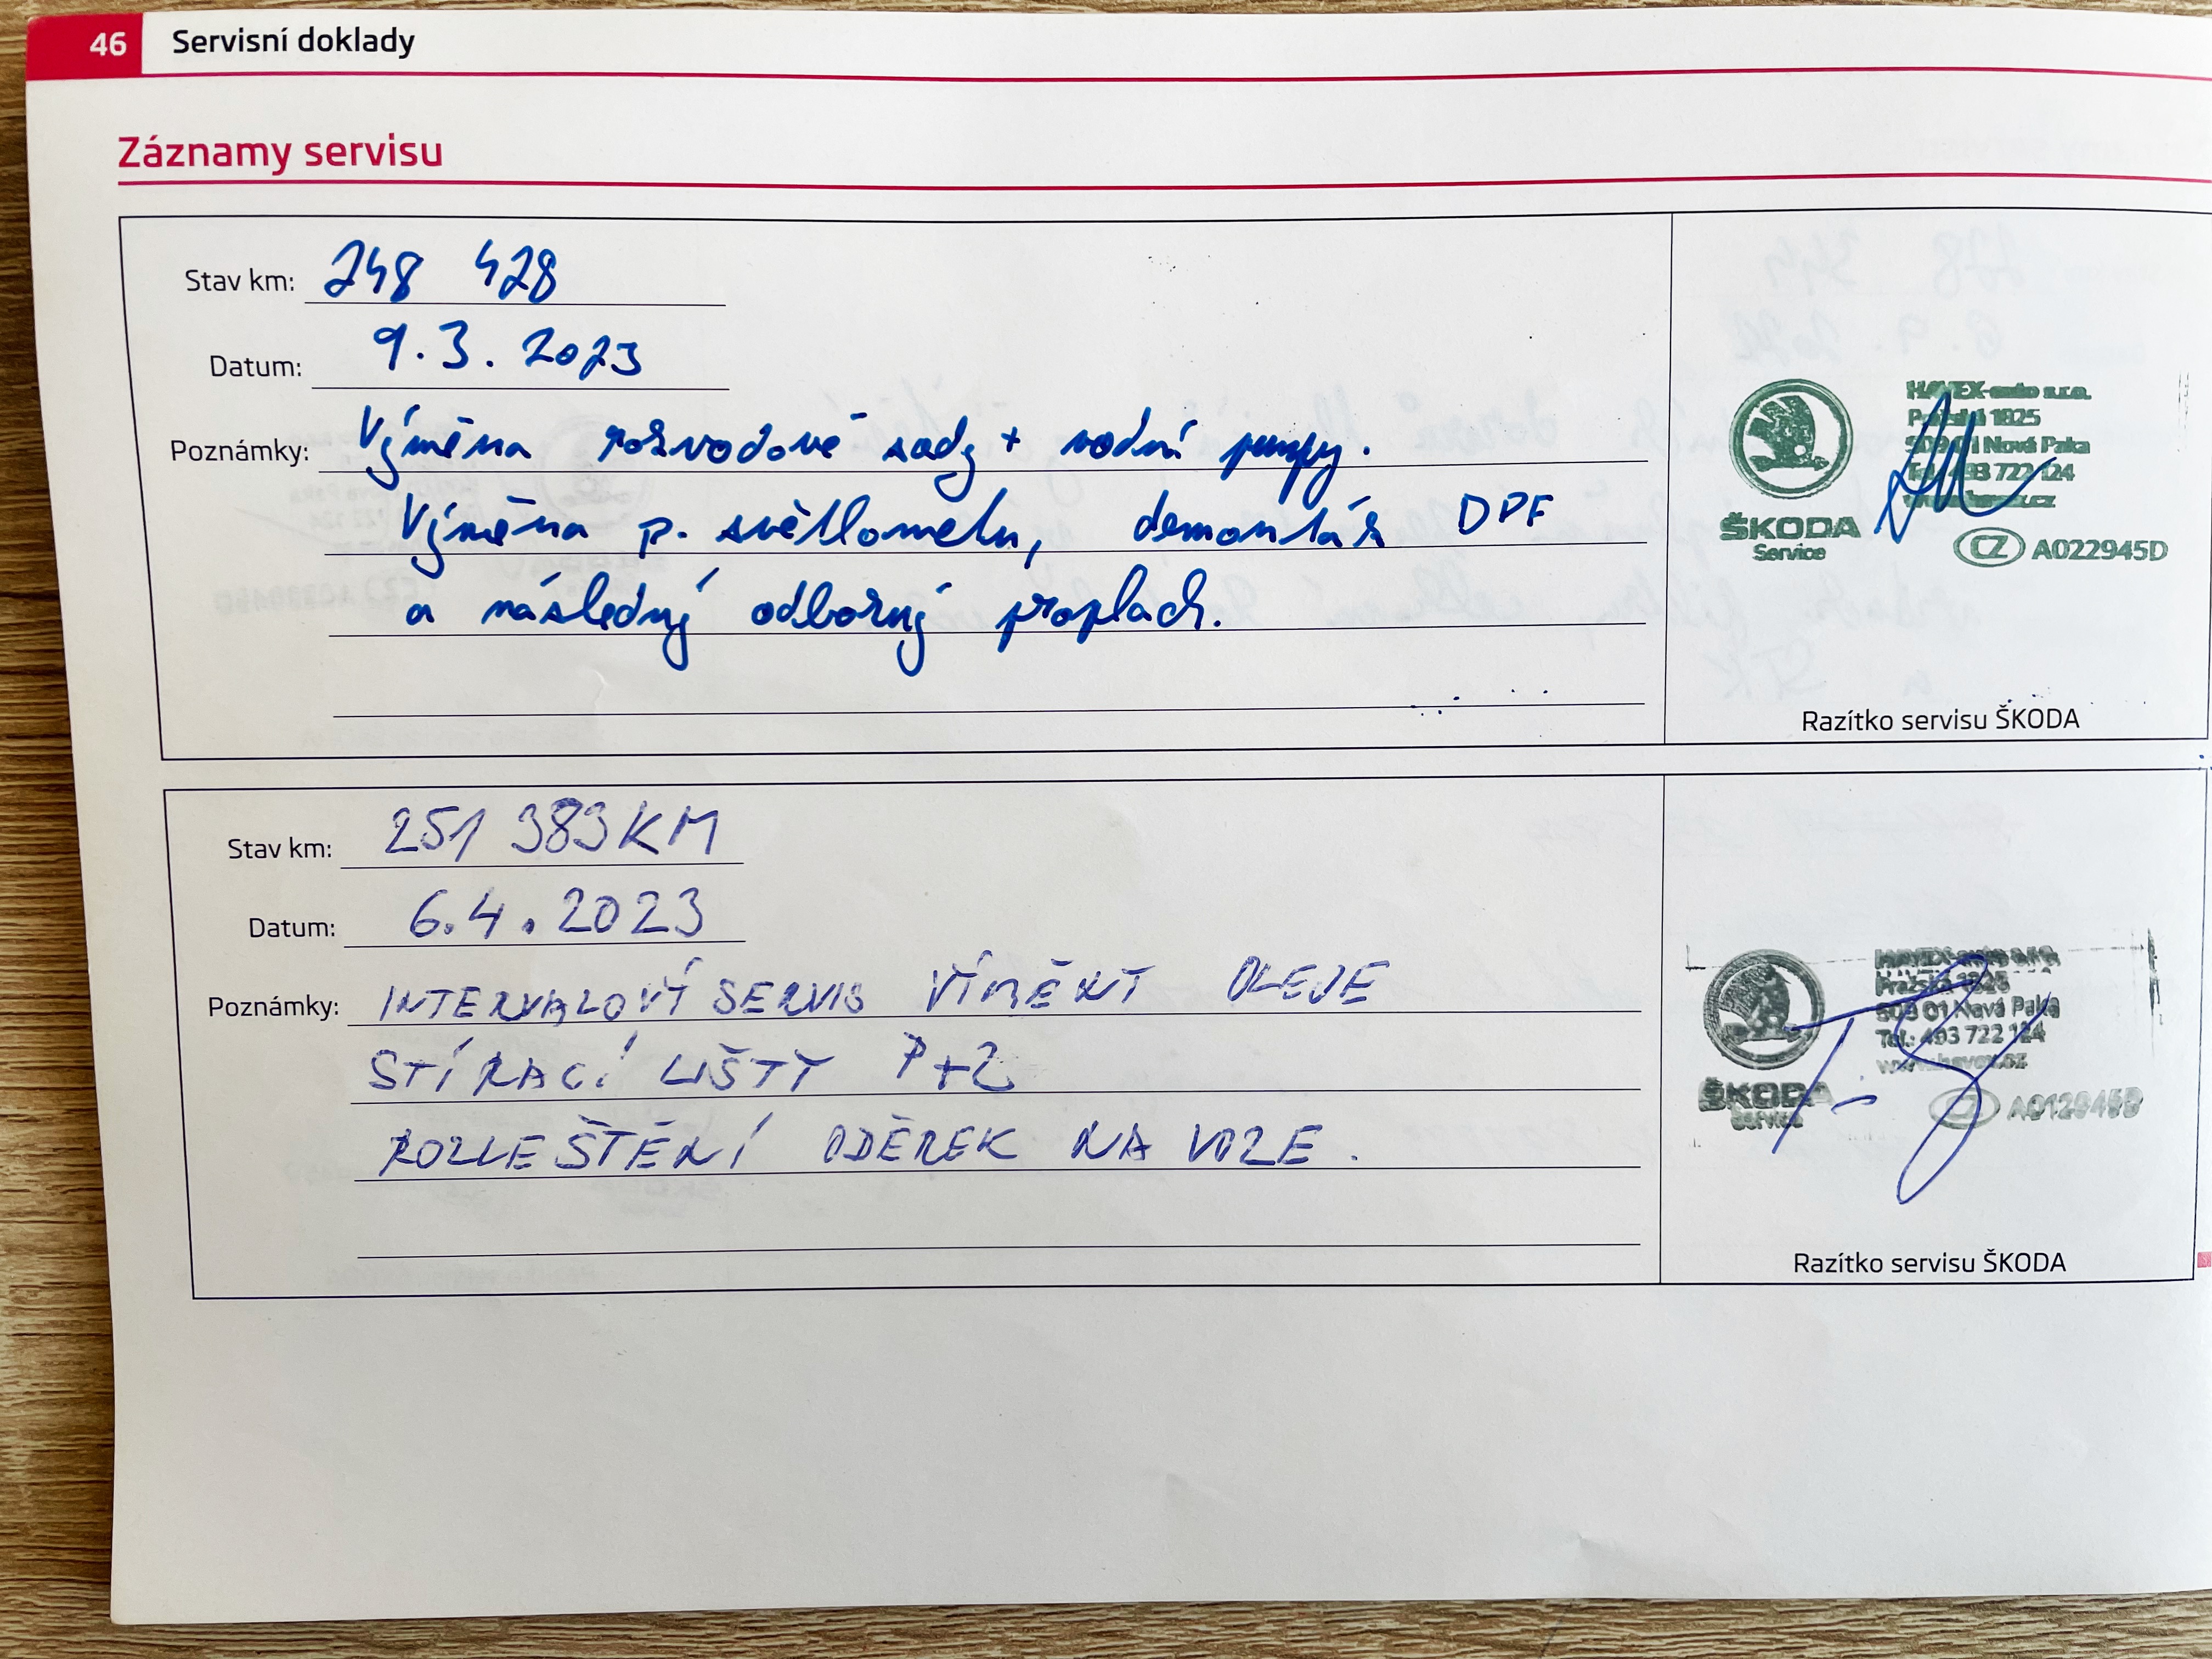 46 Servisní doklady
Záznamy servisu
Stav km: 248 428
Datum: 9.3.2023
Poznámky: Výměna rozvodové sady + vodní pumpy.
Výměna p. světlometu, demontáž DPF
a následný odborný proplach.
HAVEX-auto s.r.o.
Pražská 1825
509 01 Nová Paka
Tel.: 493 722 124
www.havex.cz
ŠKODA
Service
CZ A022945D
Razítko servisu ŠKODA
Stav km: 251 383 KM
Datum: 6.4.2023
Poznámky: INTERVALOVÝ SERVIS VÝMĚNY OLEJE
STÍRACÍ LIŠTY P+Z
ROZLEŠTĚNÍ ODĚREK NA VOZE.
HAVEX-auto s.r.o.
Pražská 1825
509 01 Nová Paka
Tel.: 493 722 124
www.havex.cz
ŠKODA
Service
CZ
Razítko servisu ŠKODA